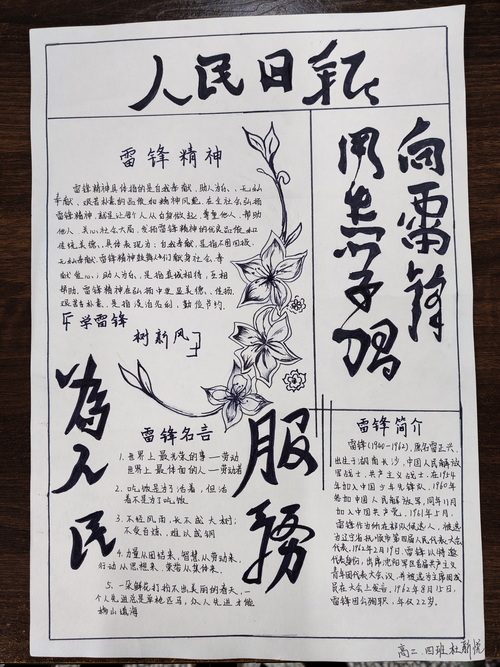 人民日报
向雷锋
同志学习
雷锋精神
雷锋精神具体指的是自我奉献,助人为乐,无私
奉献,艰苦朴素的品德和精神风貌,在全社会弘扬
雷锋精神,就是让每个人从自身做起,尊重他人,帮助
他人,关心社会大局,发扬雷锋精神的优良品德和
传统美德。具体表现为:自我奉献,是指不图回报,
无私奉献,雷锋精神鼓舞人们献身社会,奉
献爱心,助人为乐,是指真诚相待,互相
帮助,雷锋精神在弘扬中更显美德、佳扬,
艰苦朴素,是指谦洁名利,勤俭节约
『学雷锋
树新风』
為人民
服務
雷锋名言
1.世界上最光荣的事—劳动
世界上最体面的人—劳动者
2.吃饭是为了活着,但活
着不是为了吃饭
3.不经风雨,长不成大树;
不受百炼,难以成钢
4.力量从团结来,智慧从劳动来,
行动从思想来,荣誉从集体来.
5.一朵鲜花打扮不出美丽的春天,一
个人先进总是单枪匹马,众人先进才能
移山填海
雷锋简介
雷锋(1940-1962),原名雷正兴,
出生于湖南长沙,中国人民解放
军战士,共产主义战士,在1954
年加入中国少年先锋队,1960年
参加中国人民解放军,同年11月
加入中国共产党。1961年5月,
雷锋作为所在部队候选人,被选
为辽宁省抚顺市第四届人民代表大会
代表,1962年2月19日,雷锋以特邀
代表身份,出席沈阳军区首届共产主义
青年团代表大会议,并被选为主席团成
员在大会上发言,1962年8月15日,
雷锋因公殉职,年仅22岁。
高二.四班 杜